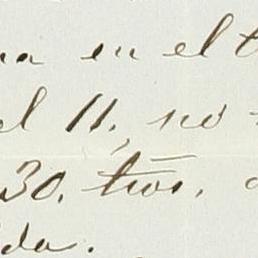 na en el t
el 11, no
30. tros.
da.